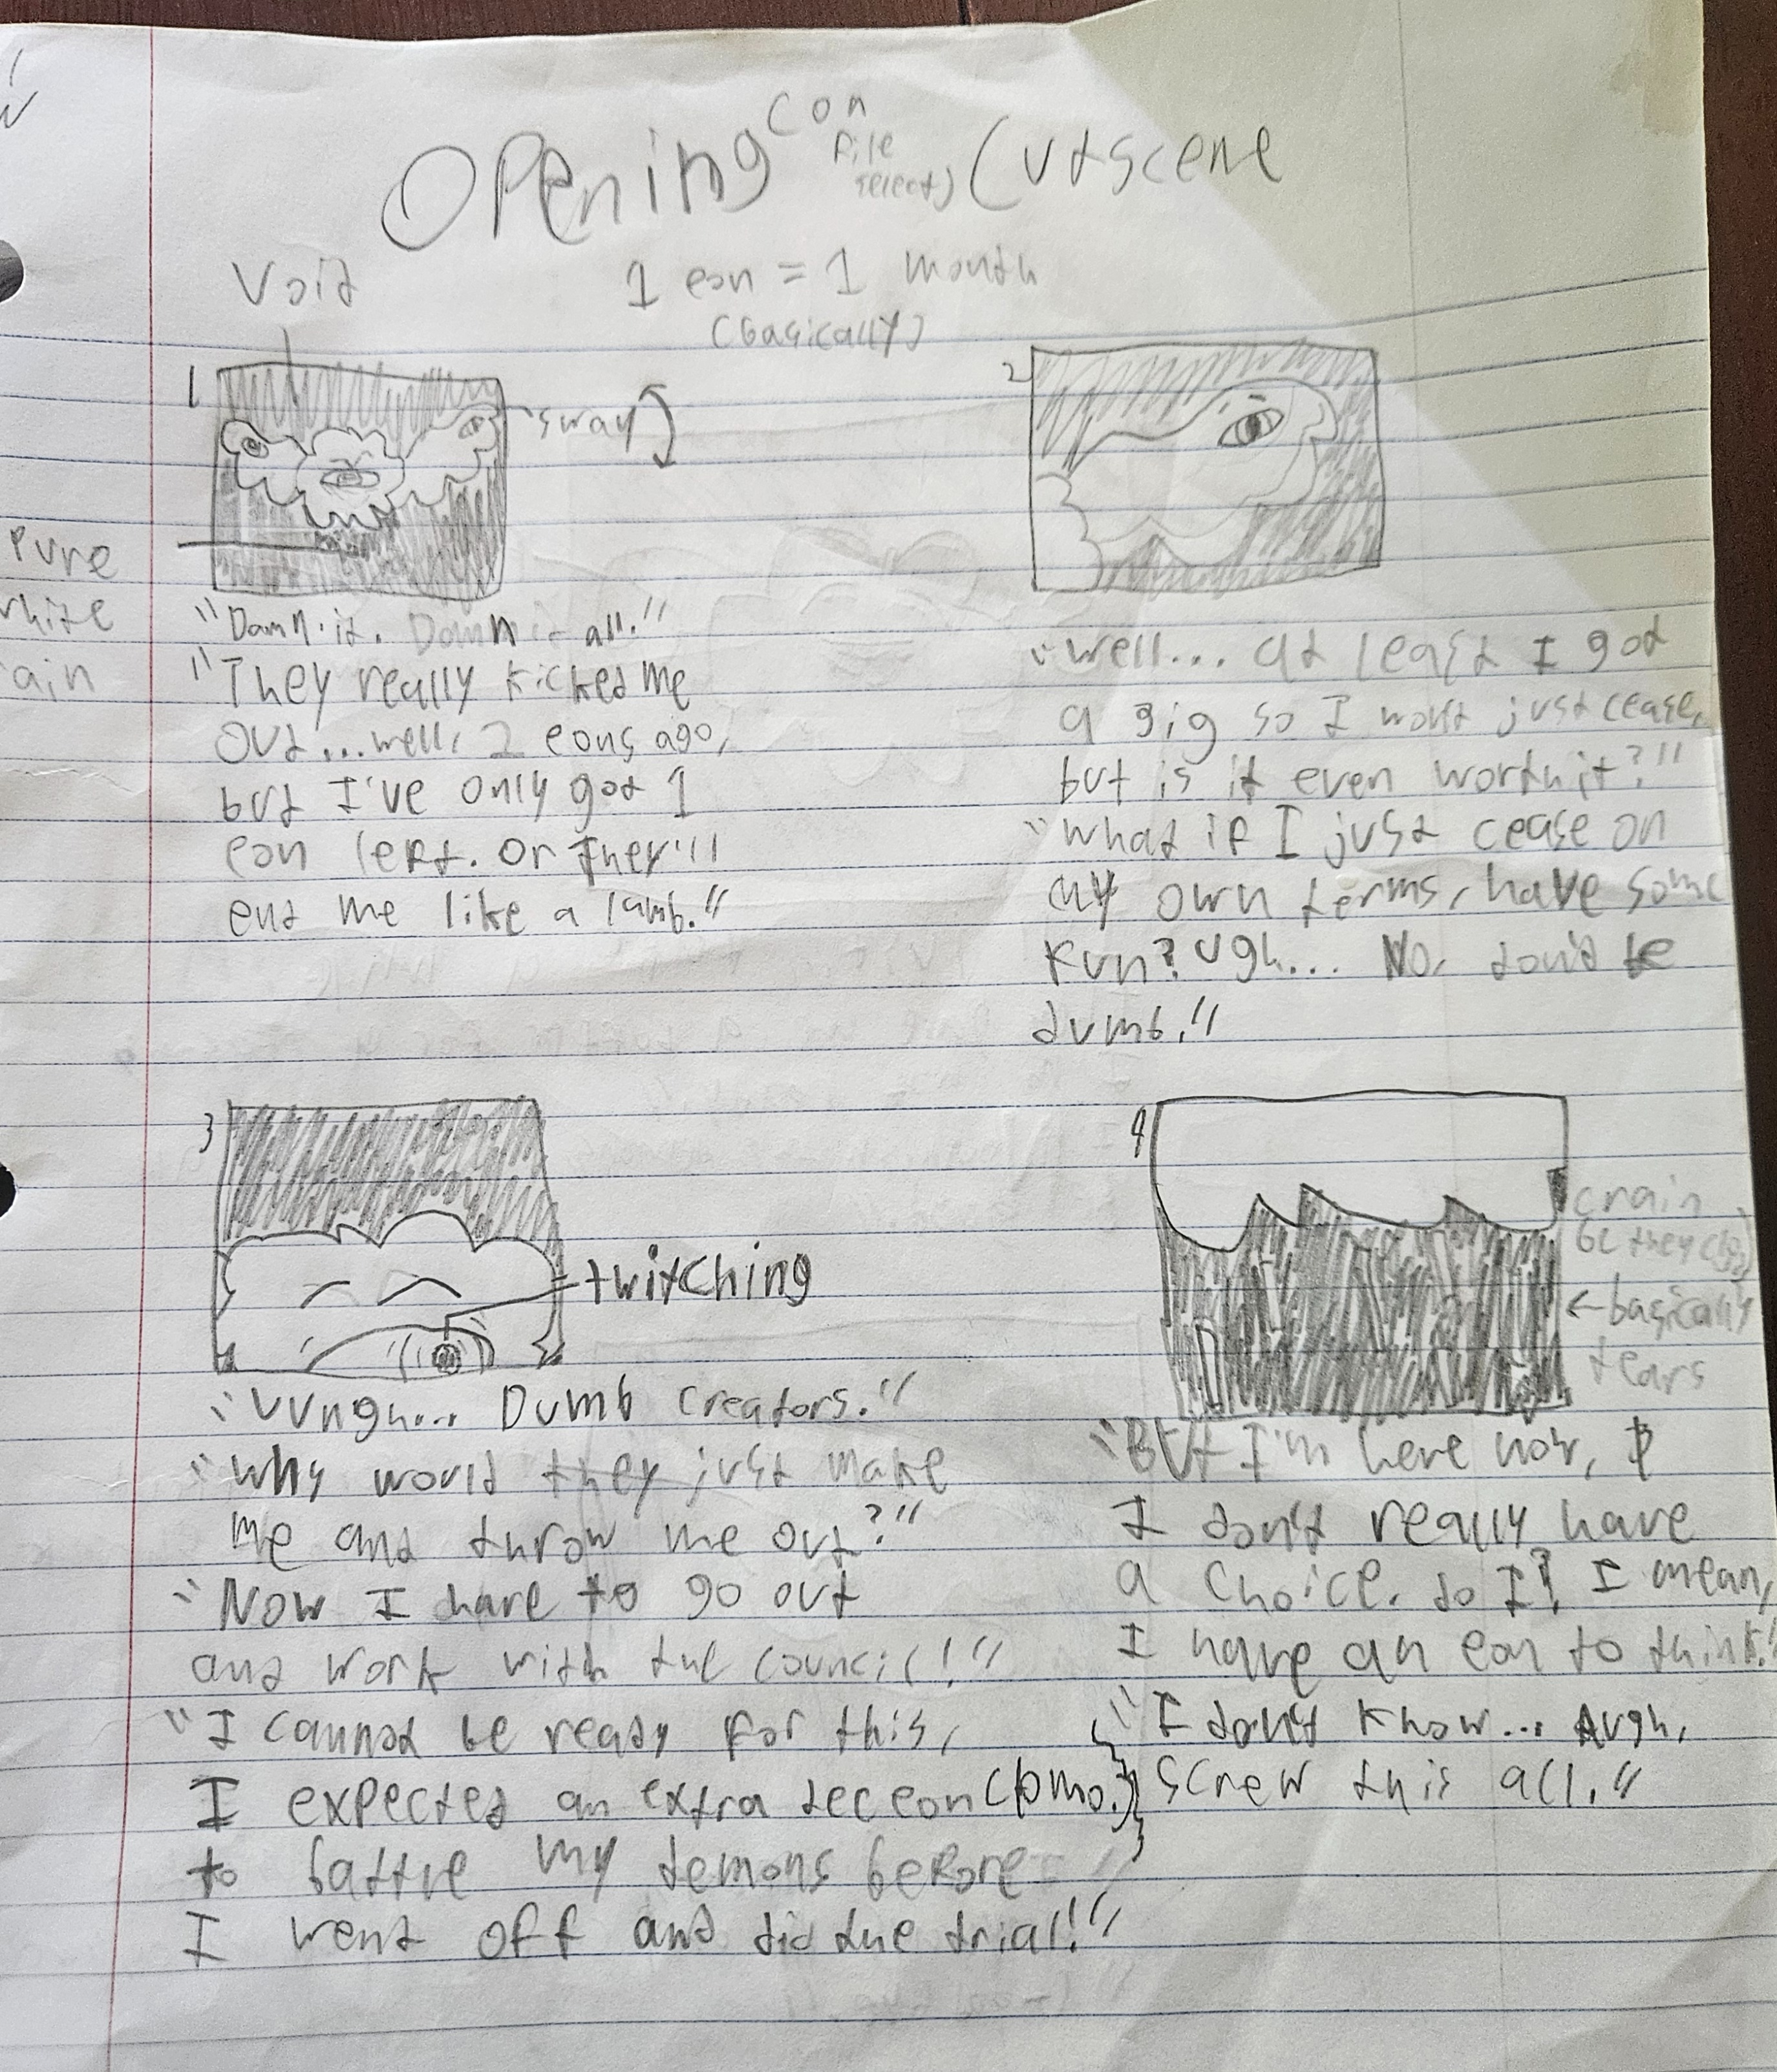 Opening (on
file
select) Cutscene
Void
1 eon = 1 month
(basically)
1
sway
pure
white
rain
"Damn it. Damn it all."
"They really kicked me
out... well, 2 eons ago,
but I've only got 1
eon left. Or they'll
end me like a lamb."
2
"Well... at least I got
a gig so I won't just cease,
but is it even worth it?"
"What if I just cease on
my own terms, have some
fun? Ugh... No, don't be
dumb."
3
twitching
"Uungh... Dumb creators."
"Why would they just make
me and throw me out?"
"Now I have to go out
and work with the council!"
"I cannot be ready for this,
I expected an extra dec eon (10mo.)
to battle my demons before
I went off and did the trial!"
4
(rain
bc they
← basically
tears
"But I'm here now,
I don't really have
a choice, do I? I mean,
I have an eon to think."
"I don't know... Augh,
screw this all."